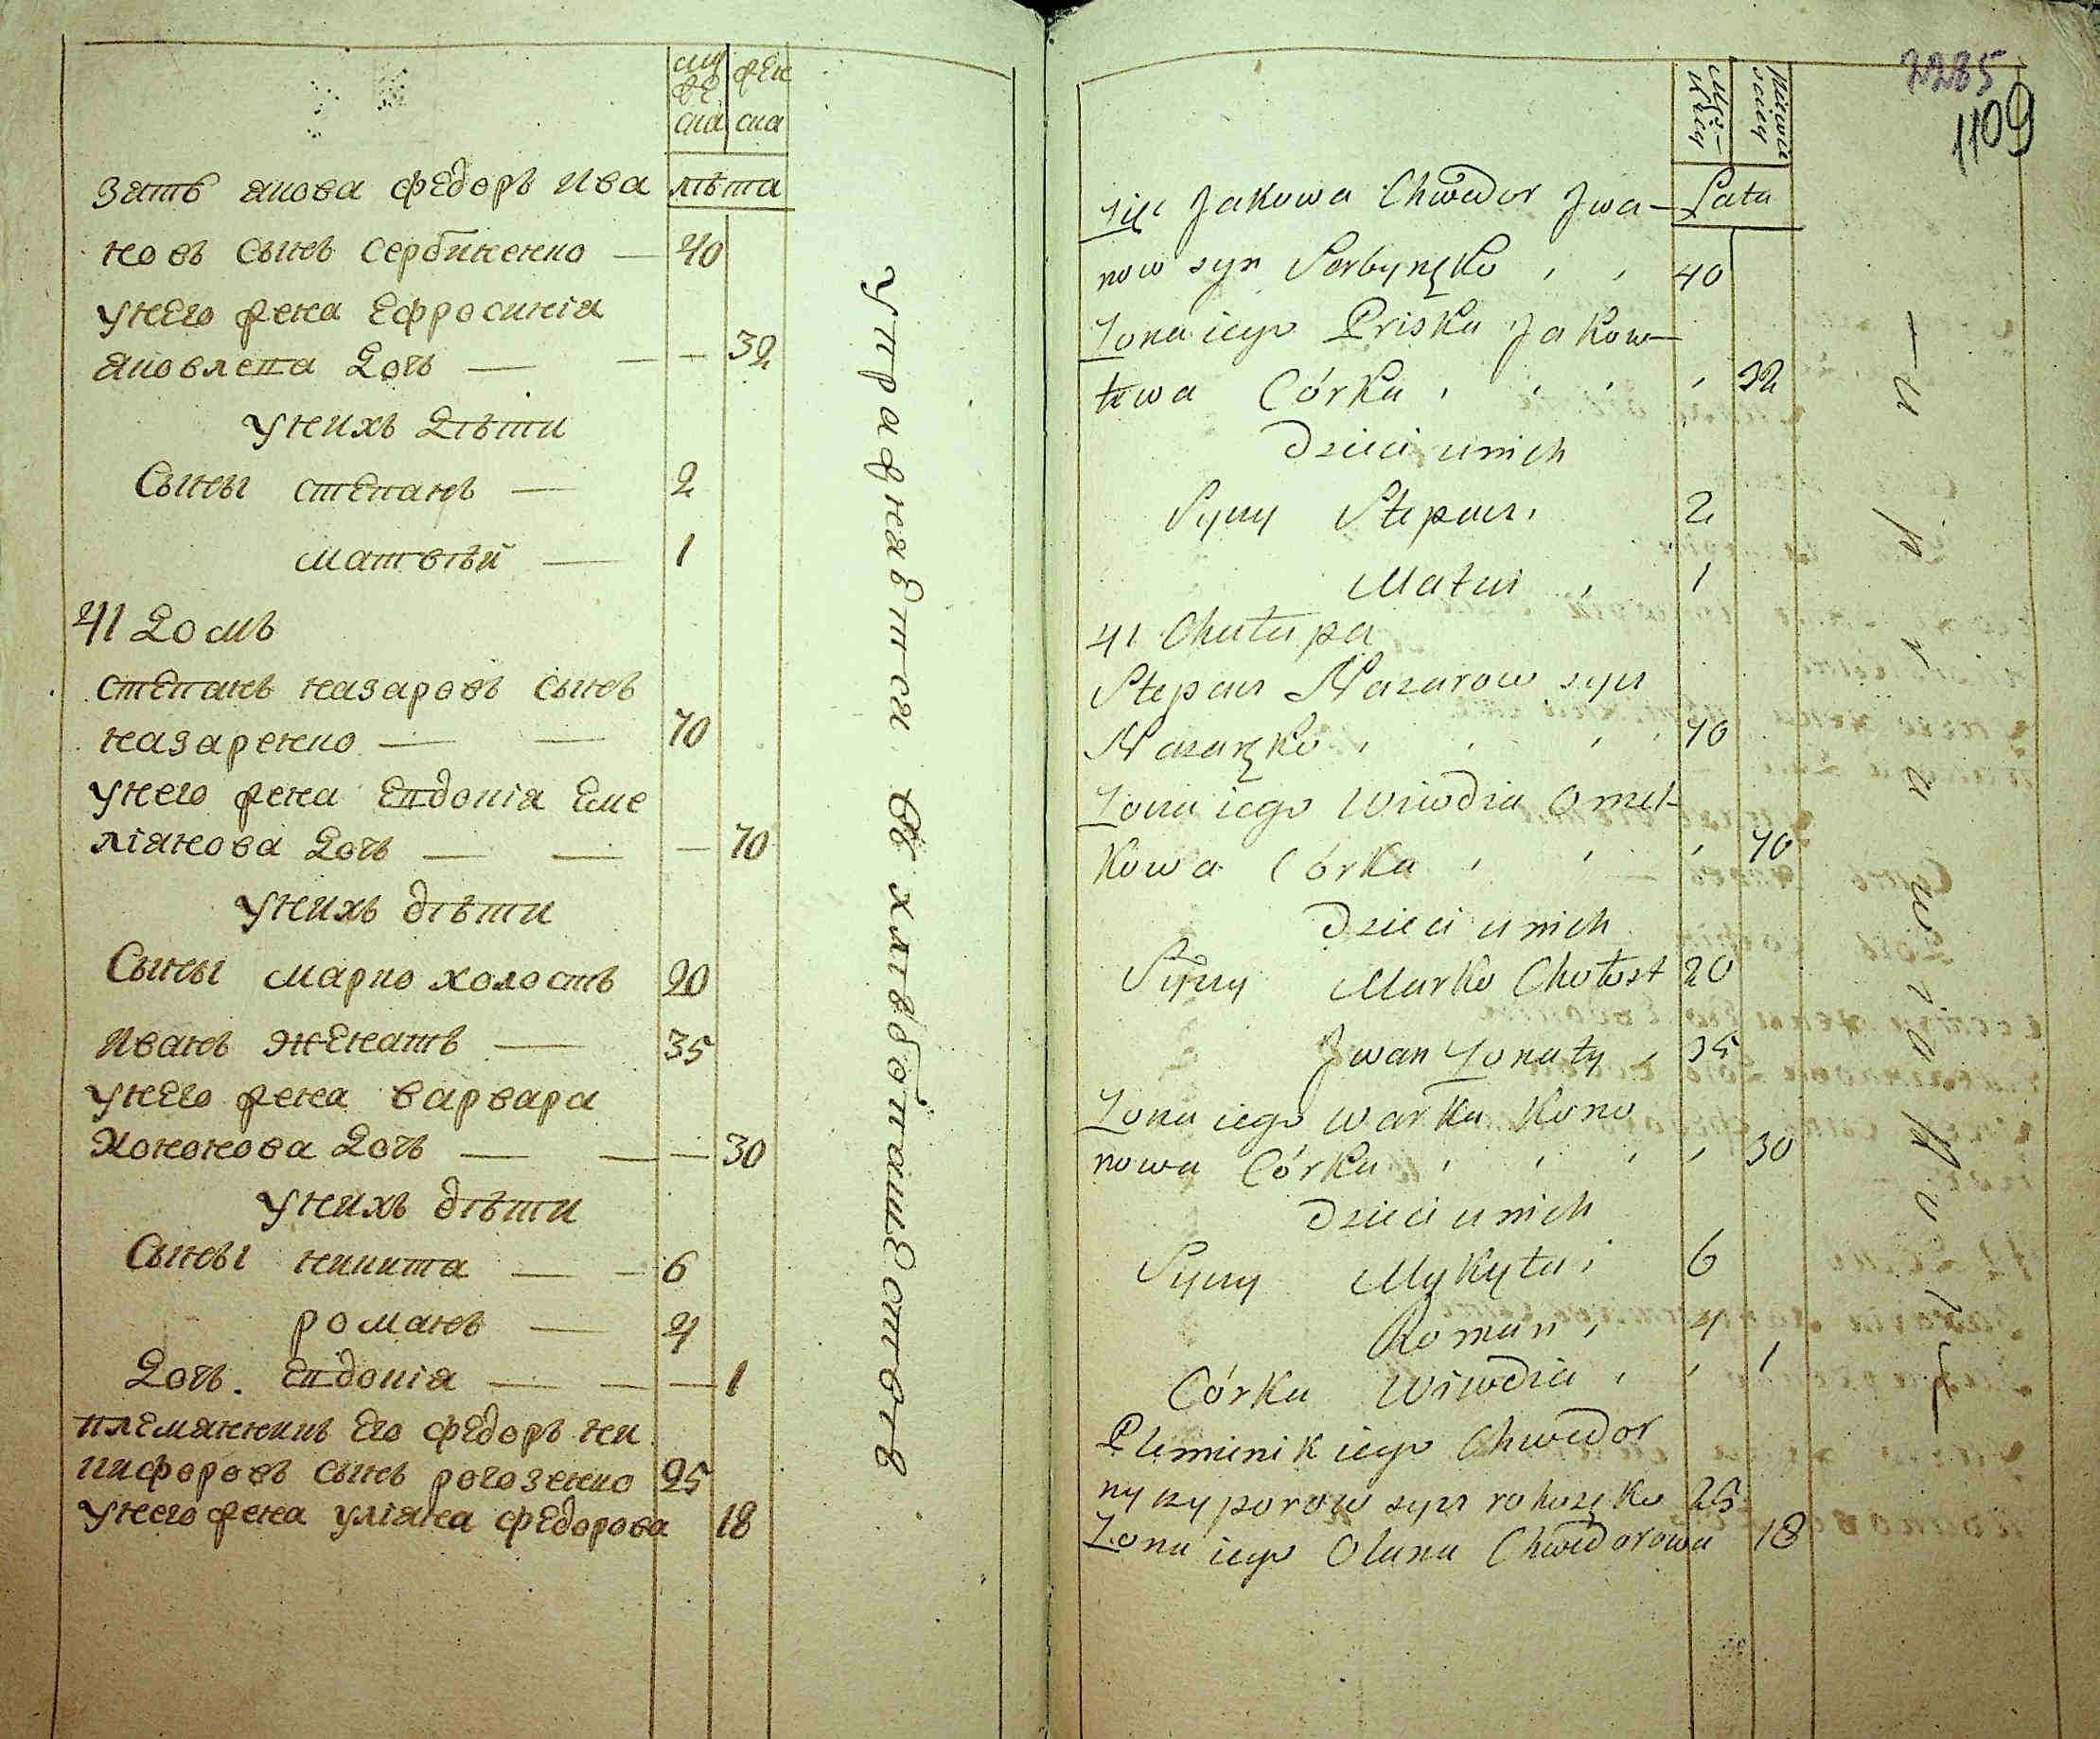 муже
ска
жен
ска
лѣта
Зать якова федоръ ива
новъ сынъ сербиненко — 40
унего жена ефросиніа
яковлева дочь — — — 32
унихъ дѣти
Сыны степанъ — 2
матвѣй — 1
41 домъ
степанъ назаровъ сынъ
назаренко — — 70
унего жена евдокіа еме
ліянова дочь — — — 70
унихъ дѣти
Сыны марко холостъ 20
иванъ женатъ — 35
унего жена варвара
кононова дочь — — — 30
унихъ дѣти
Сыны никита — — 6
романъ — 4
дочь. евдокіа — — — 1
племянникъ его федоръ ни
кифоровъ сынъ рогозенко 25
унего жена уліяна федорова 18
упражняется въ хлѣбопашествѣ
2285
1109
Męz-
kiey
Niewie
sciey
Lata
Zięć Jakowa Chwedor Jwa-
now syn Serbynęko , , 40
Zona iego Priska Jakow-
lewa Córka , , , , 32
Dzieci u nich
Syny Stepan , 2
Matwi , 1
41 Chałupa
Stepan Nazarow syn
Nazaręko , , , , 70
Zona iego Wiwdia Omel-
kowa Córka , , , 70
Dzieci u nich
Syny Marko Chołost 20
Jwan Zonaty , 35
Zona iego Warka Kono
nowa Córka , , , , 30
Dzieci u nich
Syny Mykyta , 6
Roman , 4
Córka Wiwdia , , 1
Pleminik iego Chwedor
nykyporow syn rohozęko 25
Zona iego Olana Chwedorowa 18